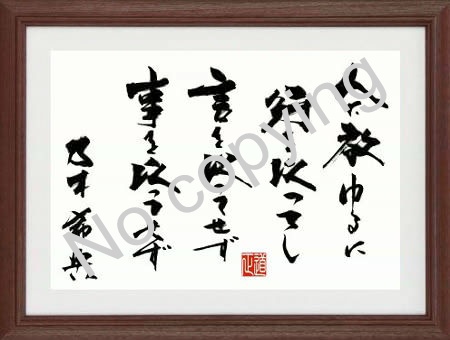 人を教ゆるに
を以つてし
言を以てせず
事を以つてせず
乃木希典
No copying